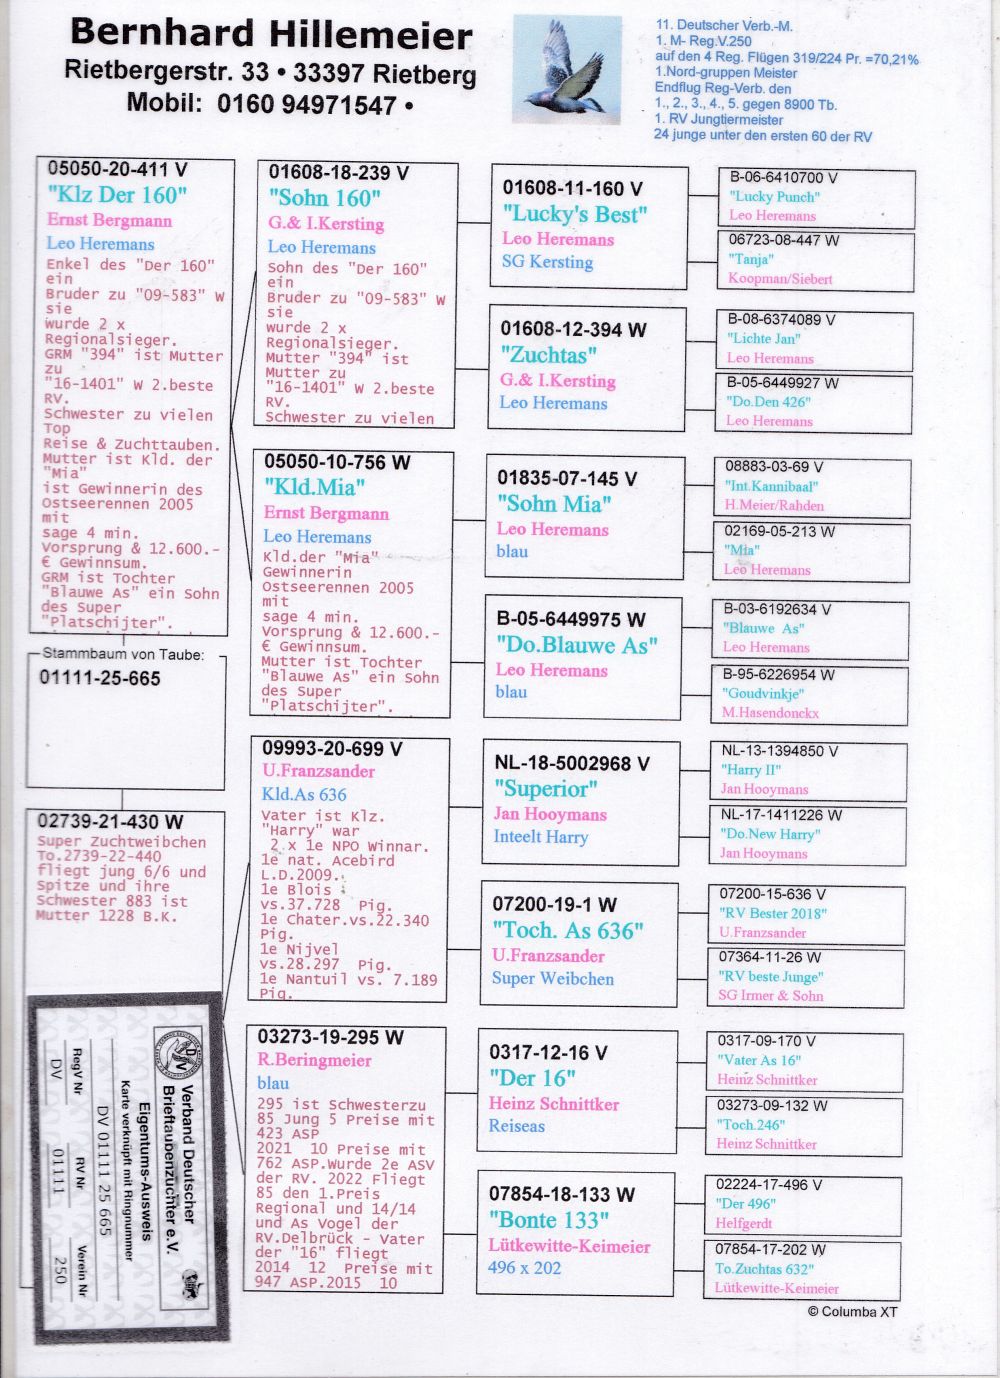 Bernhard Hillemeier
Rietbergerstr. 33 • 33397 Rietberg
Mobil: 0160 94971547 •
11. Deutscher Verb.-M.
1. M- Reg.V.250
auf den 4 Reg. Flügen 319/224 Pr. =70,21%
1.Nord-gruppen Meister
Endflug Reg-Verb. den
1., 2., 3., 4., 5. gegen 8900 Tb.
1. RV Jungtiermeister
24 junge unter den ersten 60 der RV
05050-20-411 V
"Klz Der 160"
Ernst Bergmann
Leo Heremans
Enkel des "Der 160"
ein
Bruder zu "09-583" W
sie
wurde 2 x
Regionalsieger.
GRM "394" ist Mutter
zu
"16-1401" W 2.beste
RV.
Schwester zu vielen
Top
Reise & Zuchttauben.
Mutter ist Kld. der
"Mia"
ist Gewinnerin des
Ostseerennen 2005
mit
sage 4 min.
Vorsprung & 12.600.-
€ Gewinnsum.
GRM ist Tochter
"Blauwe As" ein Sohn
des Super
"Platschijter".
Stammbaum von Taube:
01111-25-665
02739-21-430 W
Super Zuchtweibchen
To.2739-22-440
fliegt jung 6/6 und
Spitze und ihre
Schwester 883 ist
Mutter 1228 B.K.
Verband Deutscher
Brieftaubenzüchter e.V.
Eigentums-Ausweis
Karte verknüpft mit Ringnummer
DV 01111 25 665
RegV Nr
RV Nr
Verein Nr
DV
01111
250
01608-18-239 V
"Sohn 160"
G.& I.Kersting
Leo Heremans
Sohn des "Der 160"
ein
Bruder zu "09-583" W
sie
wurde 2 x
Regionalsieger.
Mutter "394" ist
Mutter zu
"16-1401" W 2.beste
RV.
Schwester zu vielen
05050-10-756 W
"Kld.Mia"
Ernst Bergmann
Leo Heremans
Kld.der "Mia"
Gewinnerin
Ostseerennen 2005
mit
sage 4 min.
Vorsprung & 12.600.-
€ Gewinnsum.
Mutter ist Tochter
"Blauwe As" ein Sohn
des Super
"Platschijter".
09993-20-699 V
U.Franzsander
Kld.As 636
Vater ist Klz.
"Harry" war
2 x 1e NPO Winnar.
1e nat. Acebird
L.D.2009.
1e Blois
vs.37.728 Pig.
1e Chater.vs.22.340
Pig.
1e Nijvel
vs.28.297 Pig.
1e Nantuil vs. 7.189
Pig.
03273-19-295 W
R.Beringmeier
blau
295 ist Schwesterzu
85 Jung 5 Preise mit
423 ASP
2021 10 Preise mit
762 ASP.wurde 2e ASV
der RV. 2022 Fliegt
85 den 1.Preis
Regional und 14/14
und As Vogel der
RV.Delbrück - Vater
der "16" fliegt
2014 12 Preise mit
947 ASP.2015 10
01608-11-160 V
"Lucky's Best"
Leo Heremans
SG Kersting
01608-12-394 W
"Zuchtas"
G.& I.Kersting
Leo Heremans
01835-07-145 V
"Sohn Mia"
Leo Heremans
blau
B-05-6449975 W
"Do.Blauwe As"
Leo Heremans
blau
NL-18-5002968 V
"Superior"
Jan Hooymans
Inteelt Harry
07200-19-1 W
"Toch. As 636"
U.Franzsander
Super Weibchen
0317-12-16 V
"Der 16"
Heinz Schnittker
Reiseas
07854-18-133 W
"Bonte 133"
Lütkewitte-Keimeier
496 x 202
B-06-6410700 V
"Lucky Punch"
Leo Heremans
06723-08-447 W
"Tanja"
Koopman/Siebert
B-08-6374089 V
"Lichte Jan"
Leo Heremans
B-05-6449927 W
"Do.Den 426"
Leo Heremans
08883-03-69 V
"Int.Kannibaal"
H.Meier/Rahden
02169-05-213 W
"Mia"
Leo Heremans
B-03-6192634 V
"Blauwe As"
Leo Heremans
B-95-6226954 W
"Goudvinkje"
M.Hasendonckx
NL-13-1394850 V
"Harry II"
Jan Hooymans
NL-17-1411226 W
"Do.New Harry"
Jan Hooymans
07200-15-636 V
"RV Bester 2018"
U.Franzsander
07364-11-26 W
"RV beste Junge"
SG Irmer & Sohn
0317-09-170 V
"Vater As 16"
Heinz Schnittker
03273-09-132 W
"Toch.246"
Heinz Schnittker
02224-17-496 V
"Der 496"
Helfgerdt
07854-17-202 W
To.Zuchtas 632"
Lütkewitte-Keimeier
© Columba XT